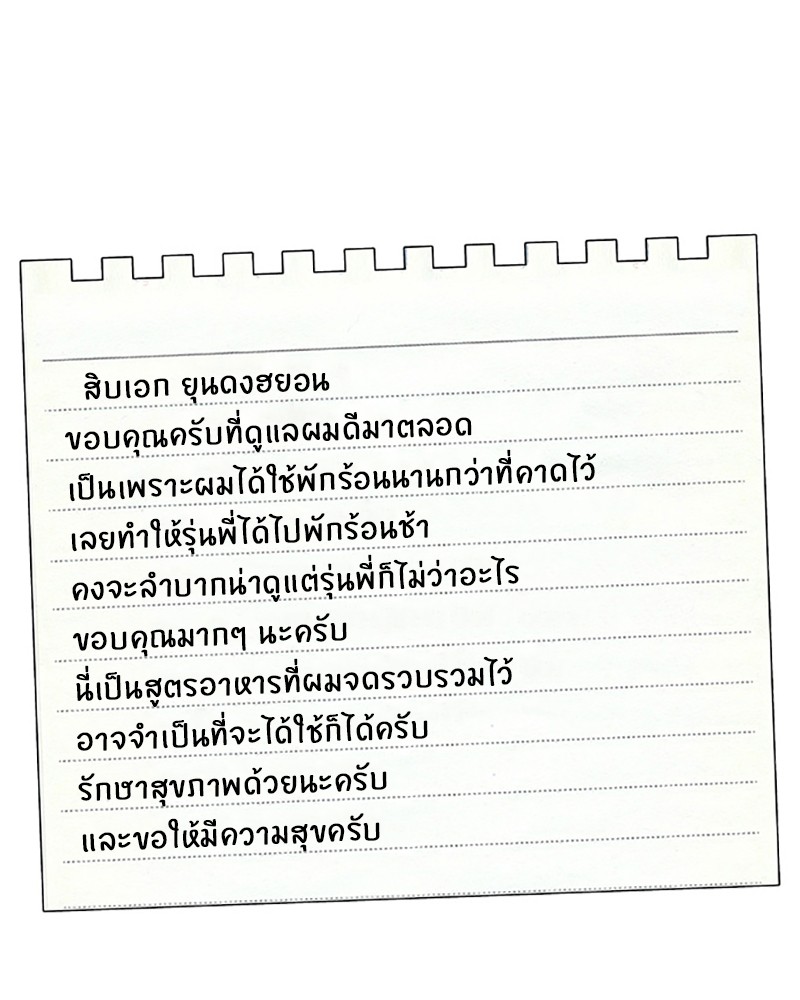 สิบเอก ยุนดงฮยอน
ขอบคุณครับที่ดูแลผมดีมาตลอด
เป็นเพราะผมได้ใช้พักร้อนนานกว่าที่คาดไว้
เลยทำให้รุ่นพี่ได้ไปพักร้อนช้า
คงจะลำบากน่าดูแต่รุ่นพี่ก็ไม่ว่าอะไร
ขอบคุณมากๆ นะครับ
นี่เป็นสูตรอาหารที่ผมจดรวบรวมไว้
อาจจำเป็นที่จะได้ใช้ก็ได้ครับ
รักษาสุขภาพด้วยนะครับ
และขอให้มีความสุขครับ